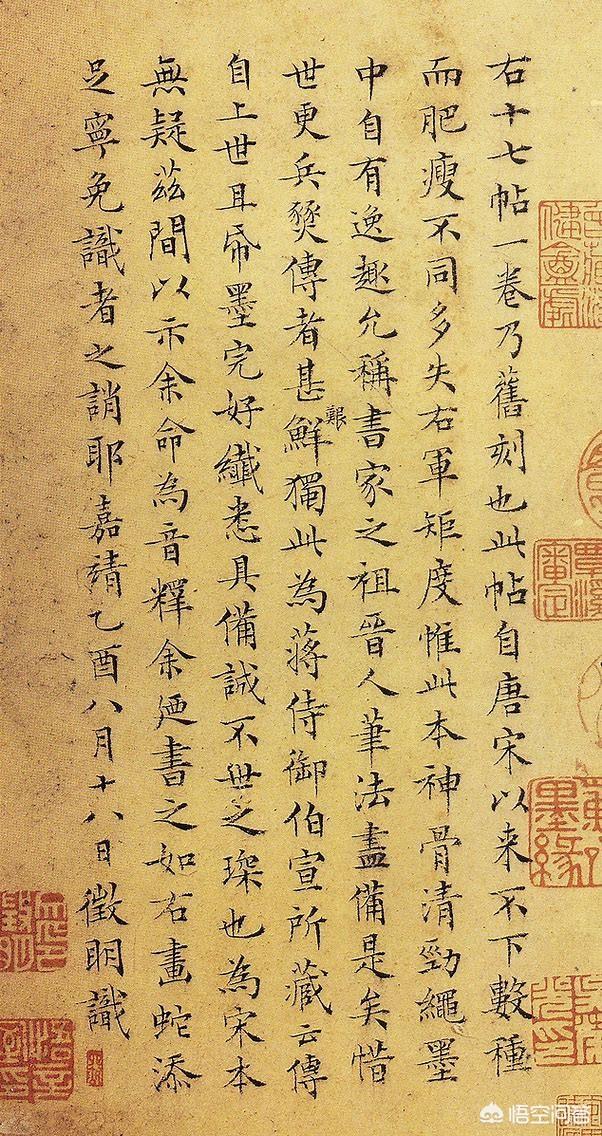 右十七帖一卷乃舊刻也此帖自唐宋以来不下數種
而肥瘦不同多失右軍矩度惟此本神骨清勁繩墨
中自有逸趣允稱書家之祖晉人筆法盡備是矣惜
世更兵燹傳者甚鮮獨此為蔣侍御伯宣所藏云傳
艱
自上世且帋墨完好纖悉具備誠不世之琛也為宋本
無疑茲間以示余命為音釋余廼書之如右畫蛇添
足寧免識者之誚耶嘉靖乙酉八月十八日徵明識
墨緣
悟空问答